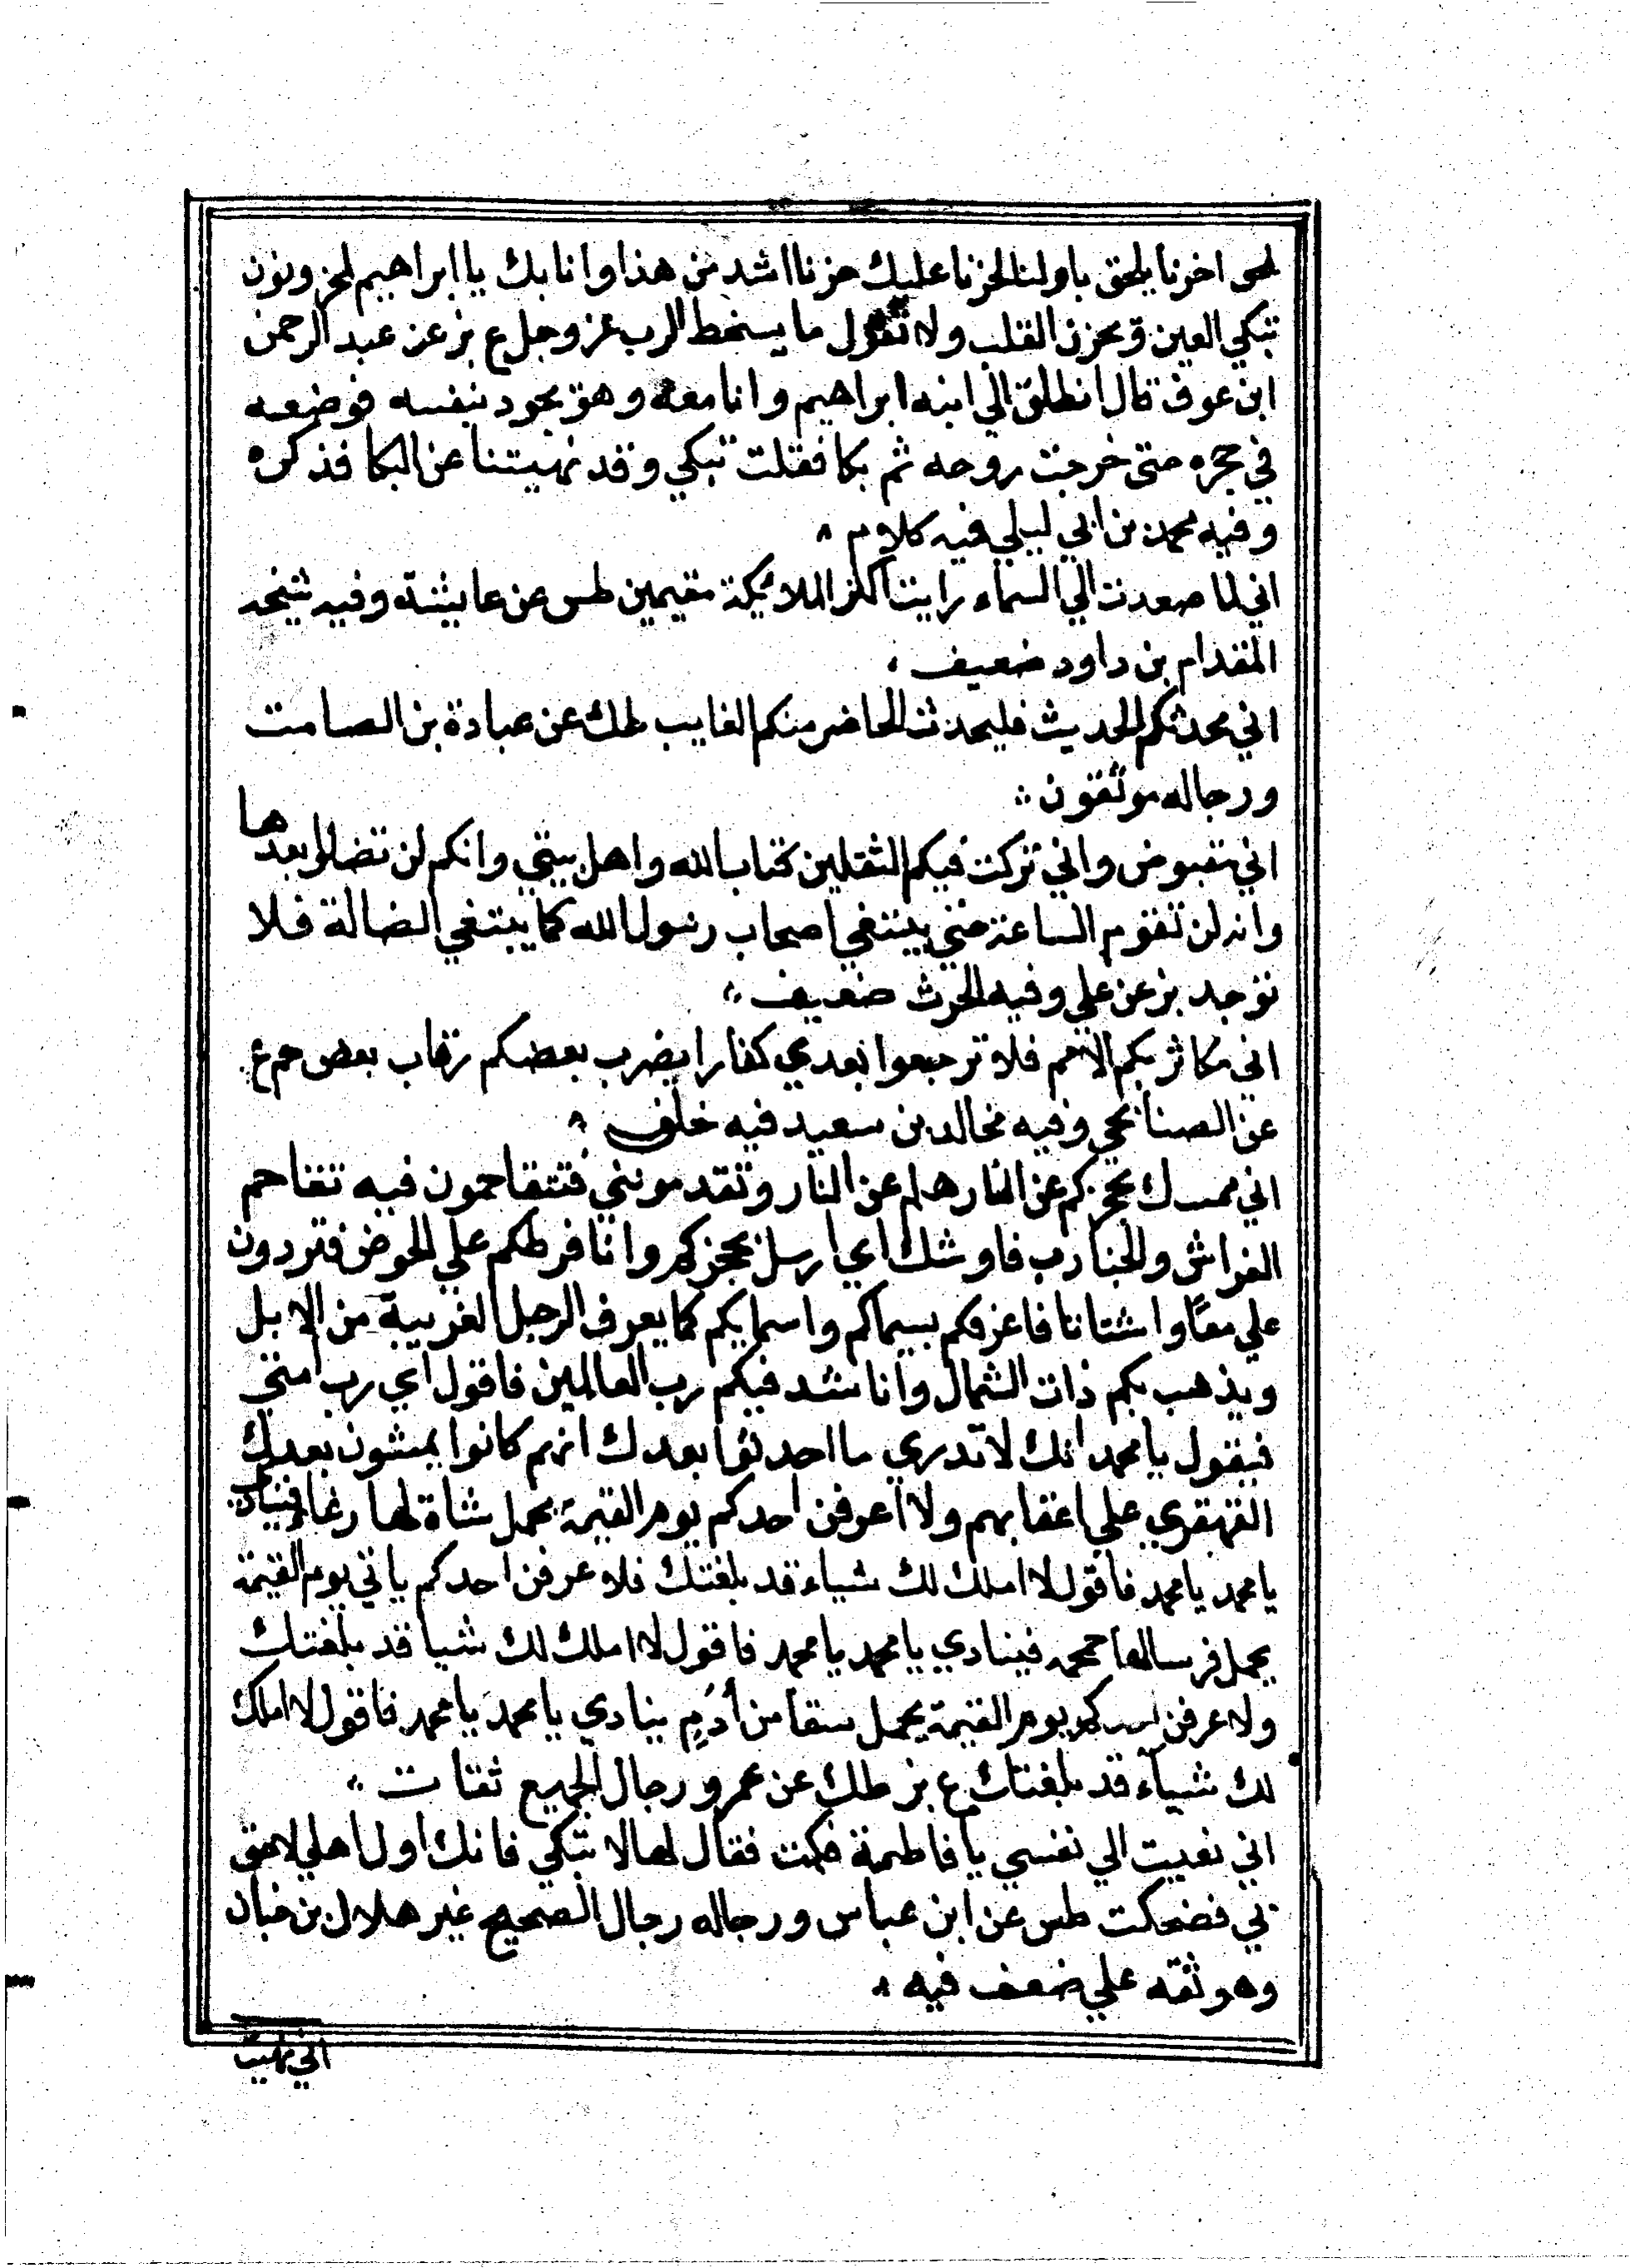 اخرنا يلحق باولنا لحزنا عليك حزنا اشد من هذا وانا بك يا ابراهيم لمحزونون
تبكي العين ويحزن القلب ولا نقول ما يسخط الرب عز وجل ع بز عن عبد الرحمن
ابن عوف قال انطلق الي ابنه ابراهيم وانا معه وهو يجود بنفسه فوضعه
في حجره حتى خرجت روحه ثم بكا فقلت تبكي وقد نهيتنا عن البكا فذكره
وفيه محمد بن ابي ليلي فيه كلام
اني لما صعدت الي السماء رايت اكثر الملائكة مقيمين طس عن عايشة وفيه شيخه
المقدام بن داود ضعيف
اني محدثكم الحديث فليحدث الحاضر منكم الغايب طك عن عبادة بن الصامت
ورجاله موثقون
اني مقبوض واني تركت فيكم الثقلين كتاب الله واهل بيتي وانكم لن تضالوا بعدها
وانه لن تقوم الساعة حتي يبتغي اصحاب رسول الله كما يبتغي الضالة فلا
توجد بز عن علي وفيه الحرث ضعيف
اني مكاثر بكم الامم فلا ترجعوا بعدي كفارا يضرب بعضكم رقاب بعض حم ع
عن الصنابحي وفيه مخالد بن سعيد فيه خلف
اني ممسك بحجزكم عن النار هلم عن النار وتقدمونني فتتقاحمون فيه تقاحم
الفراش والجنادب فاوشك اي ارسل بحجزكم وانا فرطكم علي الحوض فتردون
علي معًا واشتاتا فاعرفكم بسيماكم واسمايكم كما يعرف الرجل الغريبة من الابل
ويذهب بكم ذات الشمال واناشد فيكم رب العالمين فاقول اي رب امتي
فيقول يا محمد انك لا تدري ما احدثوا بعدك انهم كانوا يمشون بعدك
القهقري علي اعقابهم ولا اعرفن احدكم يوم القيمة يحمل شاة لها رغا فينادي
يا محمد يا محمد فاقول لا املك لك شياء قد بلغتك فلا عرفن احدكم ياتي يوم القيمة
يحمل فرسا لها حمحمه فينادي يا محمد يا محمد فاقول لا املك لك شيا قد بلغتك
ولا عرفن يوم القيمة يحمل سقا من أدَمٍ ينادي يا محمد يا محمد فاقول لا املك
لك شياء قد بلغتك ع بز طك عن عمر ورجال الجميع ثقات
اني نعيت الي نفسي يا فاطمة فبكت فقال لها لا تبكي فانك اول اهلي لاحق
بي فضحكت طس عن ابن عباس ورجاله رجال الصحيح غير هلال بن خباب
وهو ثقه علي ضعف فيه
اني نهيت